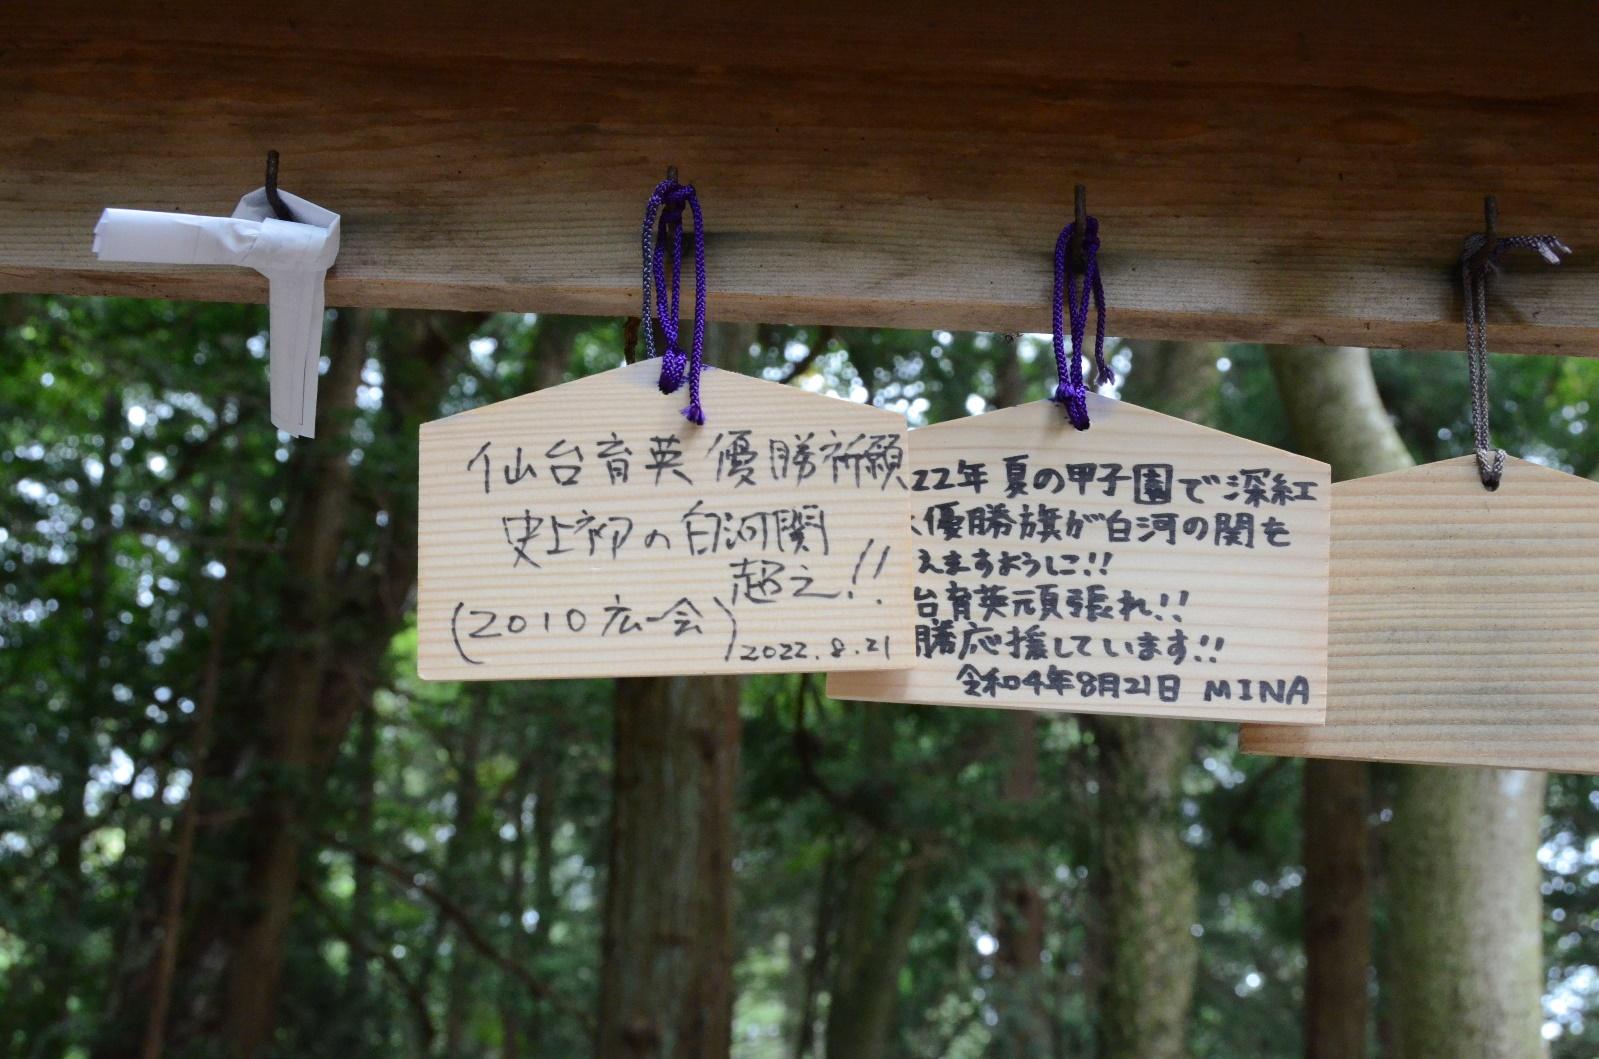 仙台育英 優勝祈願
史上初の白河関
超え!!
(2010 広一会)
2022.8.21
22年 夏の甲子園で深紅
優勝旗が白河の関を
えますように!!
台育英頑張れ!!
勝応援しています!!
令和4年8月21日 MINA